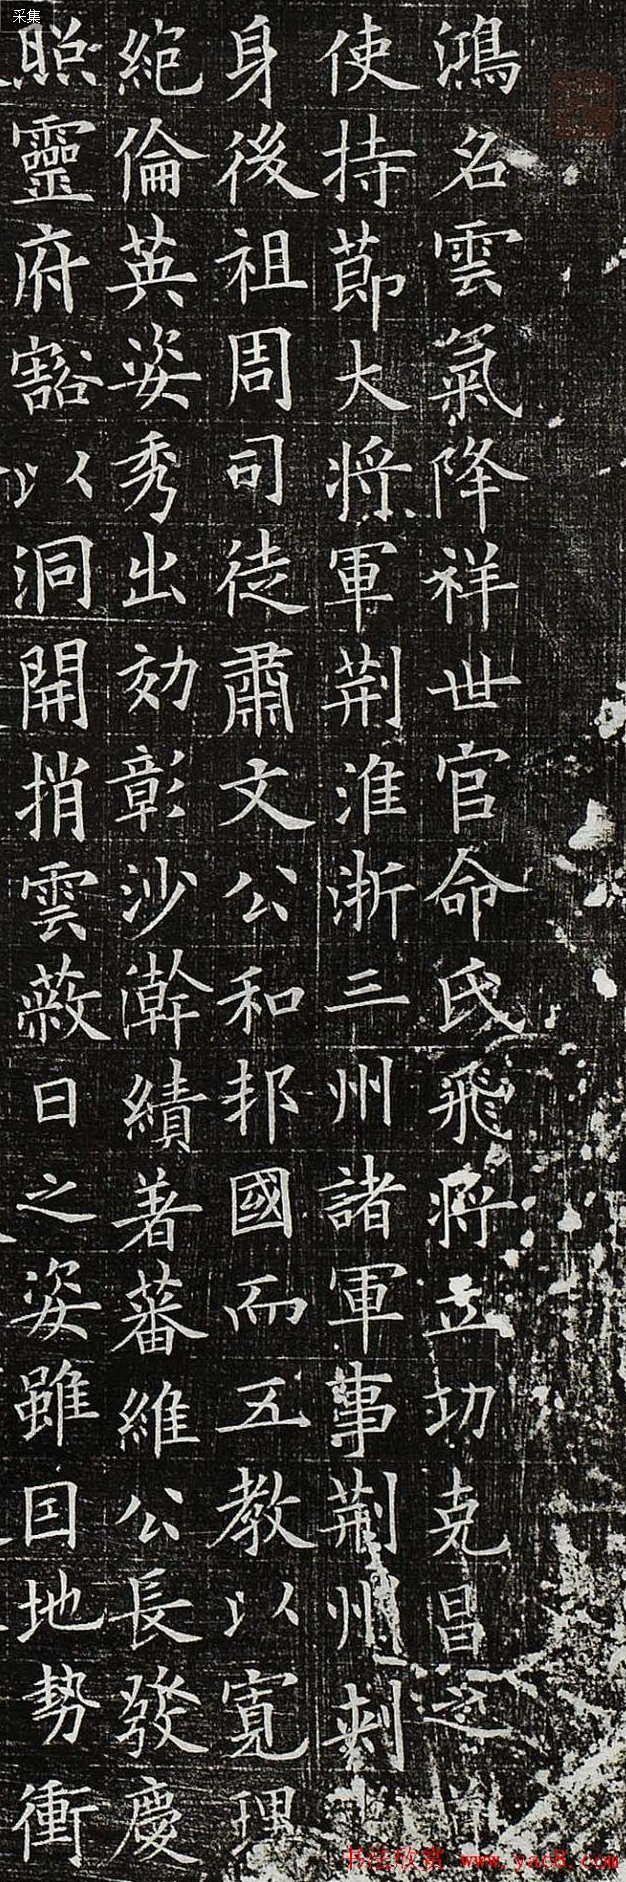 采集
鴻名雲氣降祥世官命氏飛將立功克昌之
使持節大將軍荊淮浙三州諸軍事荊州刺
身後祖周司徒肅文公和邦國而五教以寬理
絕倫英姿秀出効彰沙澣績著蕃維公長發慶
照靈府豁以洞開捎雲蔽日之姿雖因地勢衝
书法欣赏 www.yac8.com